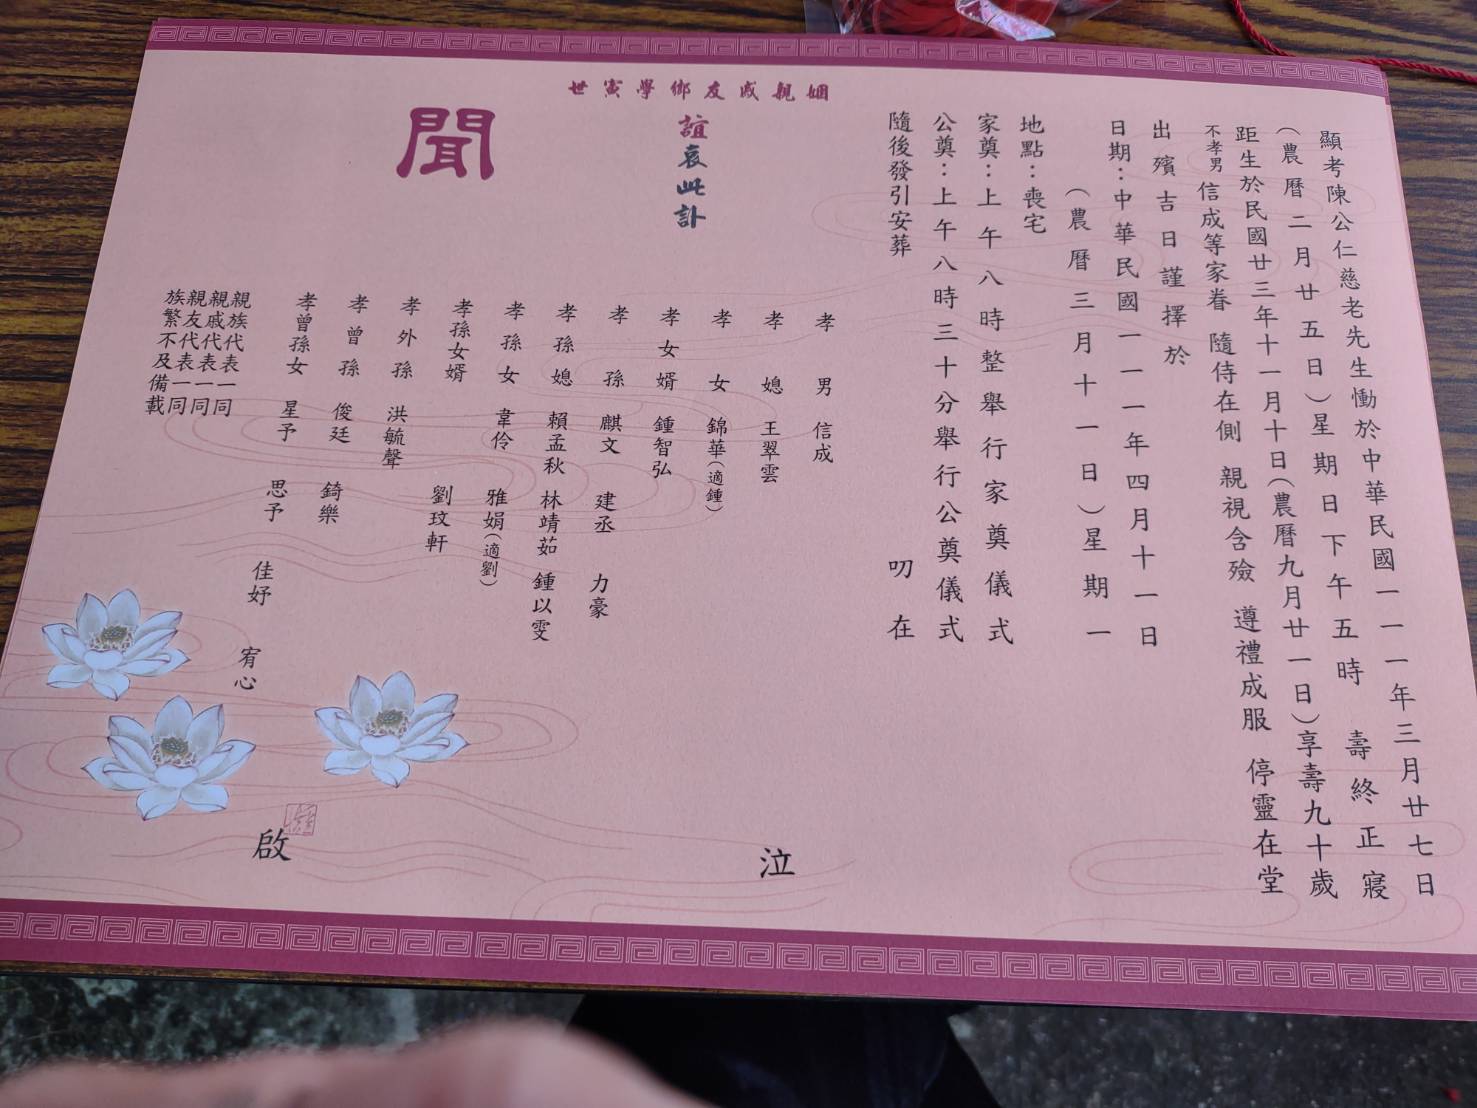 顯考陳公仁慈老先生慟於中華民國一一一年三月廿七日
(農曆二月廿五日)星期日下午五時 壽終正寢
距生於民國廿三年十一月十日(農曆九月廿一日)享壽九十歲
不孝男 信成等家眷 隨侍在側 親視含殮 遵禮成服 停靈在堂
出殯吉日謹擇於
日期:中華民國一一一年四月十一日
(農曆三月十一日)星期一
地點:喪宅
家奠:上午八時整舉行家奠儀式
公奠:上午八時三十分舉行公奠儀式
隨後發引安葬 叨在
姻親戚友鄉學寅世
誼哀此訃
聞
孝男 信成
孝媳 王翠雲
孝女 錦華(適鍾)
孝女婿 鍾智弘
孝孫 麒文 建丞 力豪
孝孫媳 賴孟秋 林靖茹 鍾以雯
孝孫女 韋伶 雅娟(適劉)
孝孫女婿 劉玟軒
孝外孫 洪毓聲
孝曾孫 俊廷 錡樂
孝曾孫女 星予 思予 佳妤 宥心
親族代表一同
親戚代表一同
親友代表一同
族繁不及備載
泣
啟